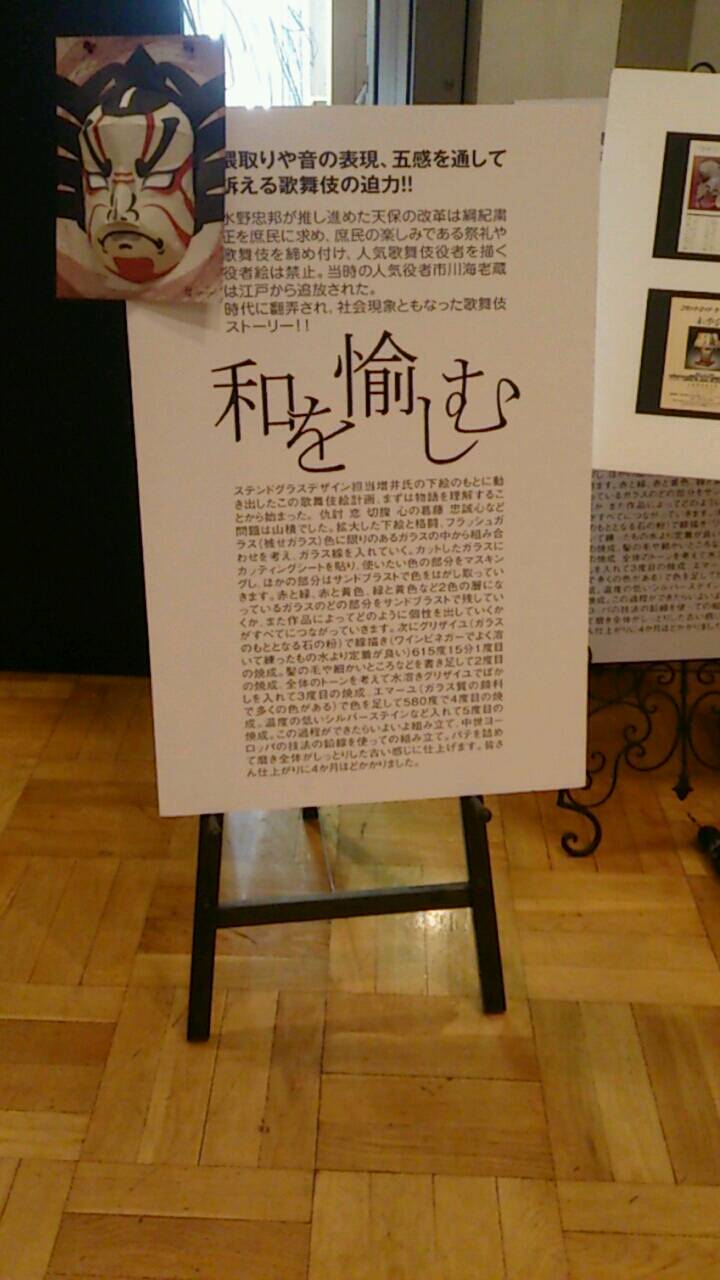 隈取りや音の表現、五感を通して
訴える歌舞伎の迫力!!
水野忠邦が推し進めた天保の改革は綱紀粛
正を庶民に求め、庶民の楽しみである祭礼や
歌舞伎を締め付け、人気歌舞伎役者を描く
役者絵は禁止。当時の人気役者市川海老蔵
は江戸から追放された。
時代に翻弄され、社会現象ともなった歌舞伎
ストーリー!!
和を愉しむ
ステンドグラスデザイン担当増井氏の下絵のもとに動
き出したこの歌舞伎絵計画、まずは物語を理解するこ
とから始まった。仇討 恋 切腹 心の葛藤 忠誠心など
問題は山積でした。拡大した下絵と格闘、フラッシュガ
ラス(被せガラス)色に限りのあるガラスの中から組み合
わせを考え、ガラス線を入れていく。カットしたガラスに
カッティングシートを貼り、使いたい色の部分をマスキン
グし、ほかの部分はサンドブラストで色をはがし取ってい
きます。赤と緑、赤と黄色、緑と黄色など2色の層にな
っているガラスのどの部分をサンドブラストで残してい
くか、また作品によってどのように個性を出していくか
がすべてにつながっていきます。次にグリザイユ(ガラス
のもととなる石の粉)で線描き(ワインビネガーでよく溶
いて練ったもの水より定着が良い)615度15分1度目
の焼成。髪の毛や細かいところなどを書き足して2度目
の焼成、全体のトーンを考えて水溶きグリザイユでぼか
しを入れて3度目の焼成、エマーユ(ガラス質の顔料
で多くの色がある)で色を足して580度で4度目の焼
成。温度の低いシルバーステインなど入れて5度目の
焼成。この過程ができたらいよいよ組み立て、中世ヨー
ロッパの技法の鉛線を使っての組み立て。パテを詰め
て磨き全体がしっとりした古い感じに仕上げます。皆さ
ん仕上がりに4か月ほどかかりました。